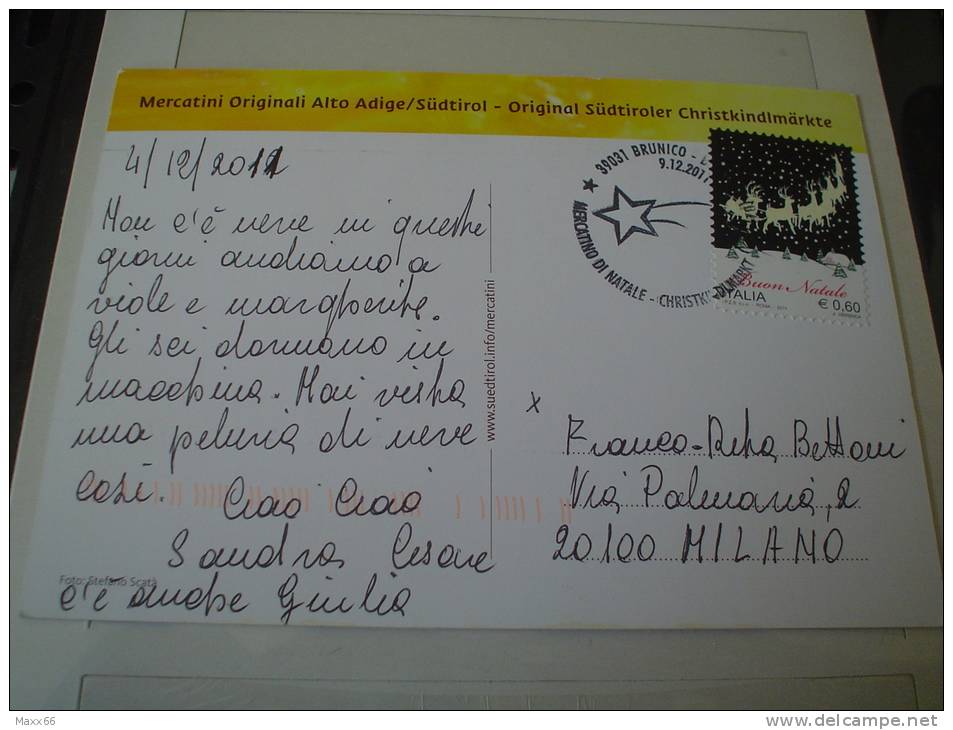 Mercatini Originali Alto Adige/Südtirol - Original Südtiroler Christkindlmärkte
4/12/2011
Non c'è neve in questi
giorni andiamo a
viole e margherite.
Gli sci dormono in
macchina. Mai vista
una penuria di neve
così. Ciao Ciao
Sandra Cesare
c'è anche Giulia
Foto: Stefano Scatà
www.suedtirol.info/mercatini
39031 BRUNICO -
9.12.2011
MERCATINO DI NATALE - CHRISTKINDLMARKT
Buon Natale
ITALIA
€ 0,60
x
Franco-Rita Bettoni
Via Palmaria, 2
20100 MILANO
Maxx66
www.delcampe.net